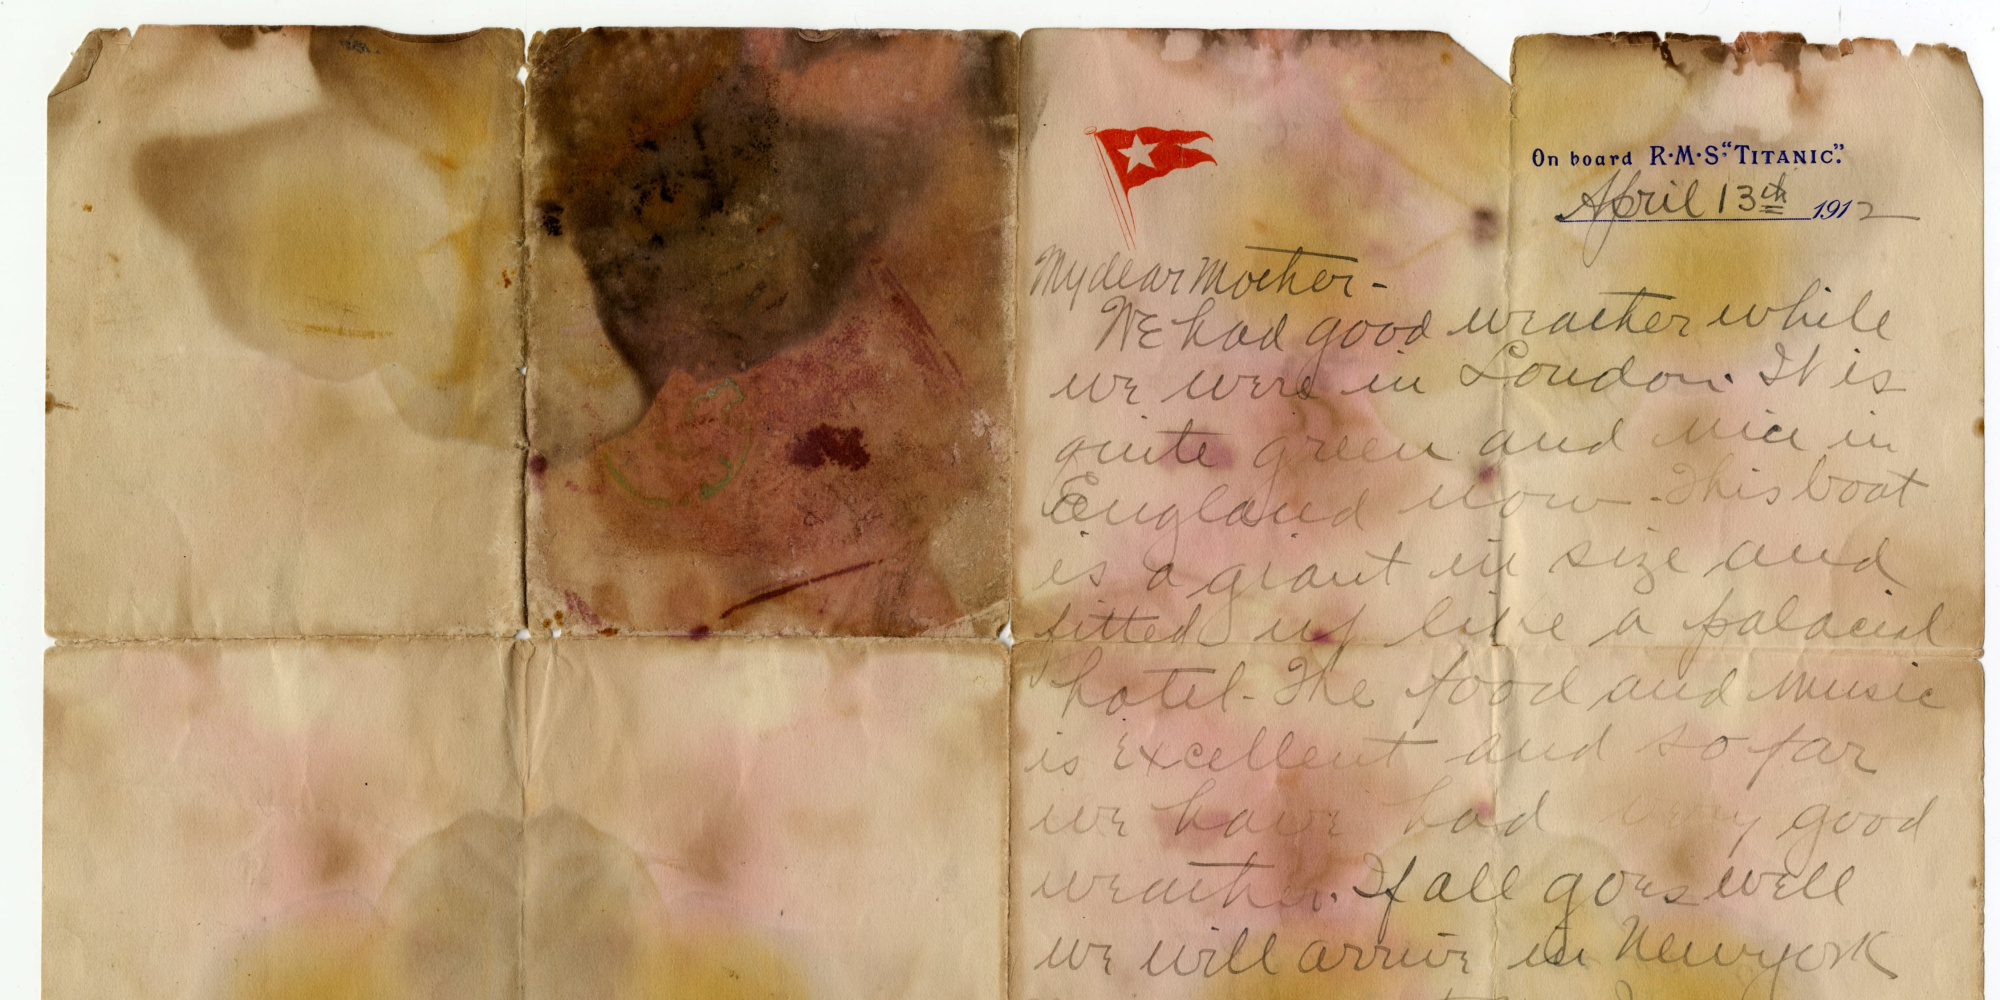 On board R·M·S "TITANIC".
April 13th 1912
My dear Mother -
We had good weather while
we were in London. It is
quite green and nice in
England now. This boat
is a giant in size and
fitted up like a palacial
hotel - The food and music
is excellent and so far
we have had very good
weather. If all goes well
we will arrive in New york